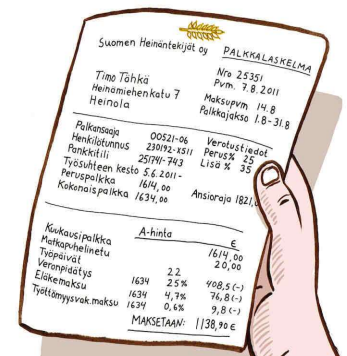 Suomen Heinäntekijät oy
PALKKALASKELMA
Nro 25351
Pvm. 7.8.2011
Timo Tähkä
Heinämiehenkatu 7
Heinola
Maksupvm 14.8
Palkkajakso 1.8-31.8
Palkansaaja 00521-06
Henkilötunnus 230192-X511
Pankkitili 251741-743
Työsuhteen kesto 5.6.2011-
Peruspalkka 1614,00
Kokonaispalkka 1634,00
Verotustiedot
Perus% 25
Lisä % 35
Ansioraja 1821,
A-hinta €
Kuukausipalkka 1614,00
Matkapuhelinetu 20,00
Työpäivät 22
Veronpidätys 1634 25% 408,5(-)
Eläkemaksu 1634 4,7% 76,8(-)
Työttömyysvak.maksu 1634 0,6% 9,8(-)
MAKSETAAN: 1138,90 €